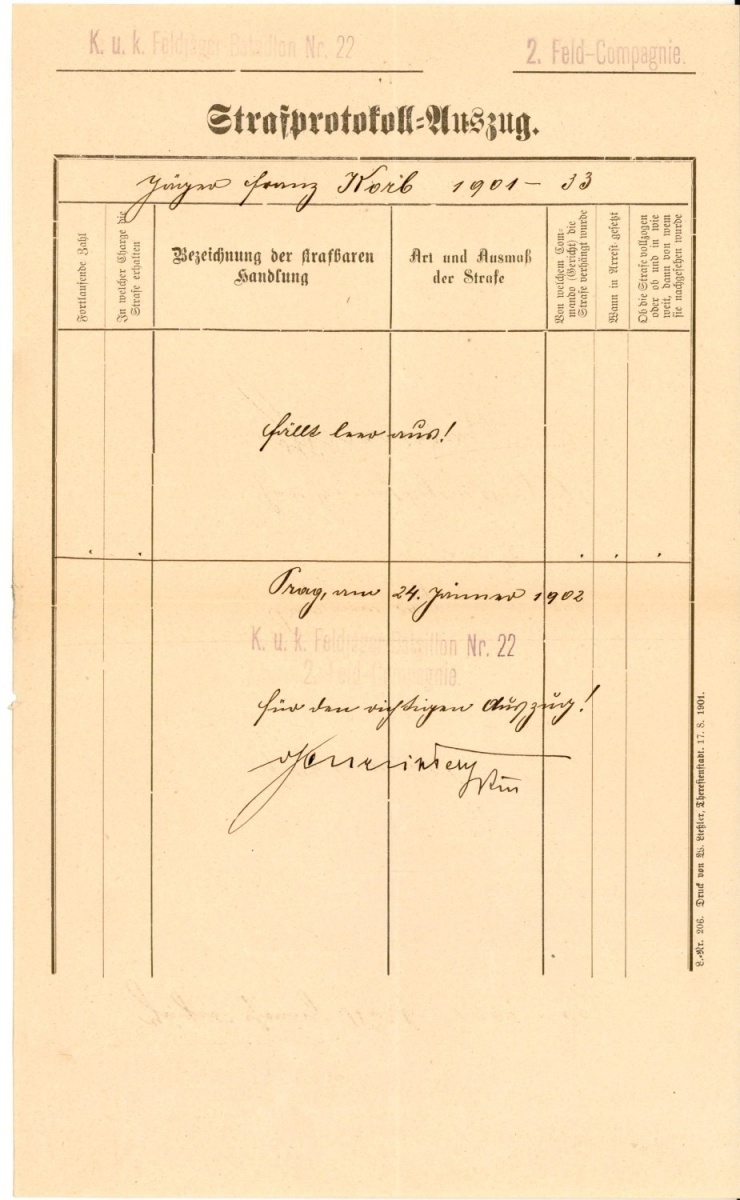 K. u. k. Feldjäger-Bataillon Nr. 22
2. Feld-Compagnie.
Strafprotokoll-Auszug.
Jäger Franz Korb 1901 – 33
Fortlaufende Zahl
In welcher Charge die
Strafe erhalten
Bezeichnung der strafbaren
Handlung
Art und Ausmaß
der Strafe
Von welchem Com-
mando (Gericht) die
Strafe verhängt wurde
Wann in Arrest gesetzt
Ob die Strafe vollzogen
oder ob und in wie
weit, dann von wem
sie nachgesehen wurde
fällt leer aus!
Prag, am 24. Jänner 1902
K. u. k. Feldjäger-Bataillon Nr. 22
2. Feld-Compagnie.
für den richtigen Auszug!
L.-Nr. 206. Druck von W. Theresienstadt. 17. 8. 1901.